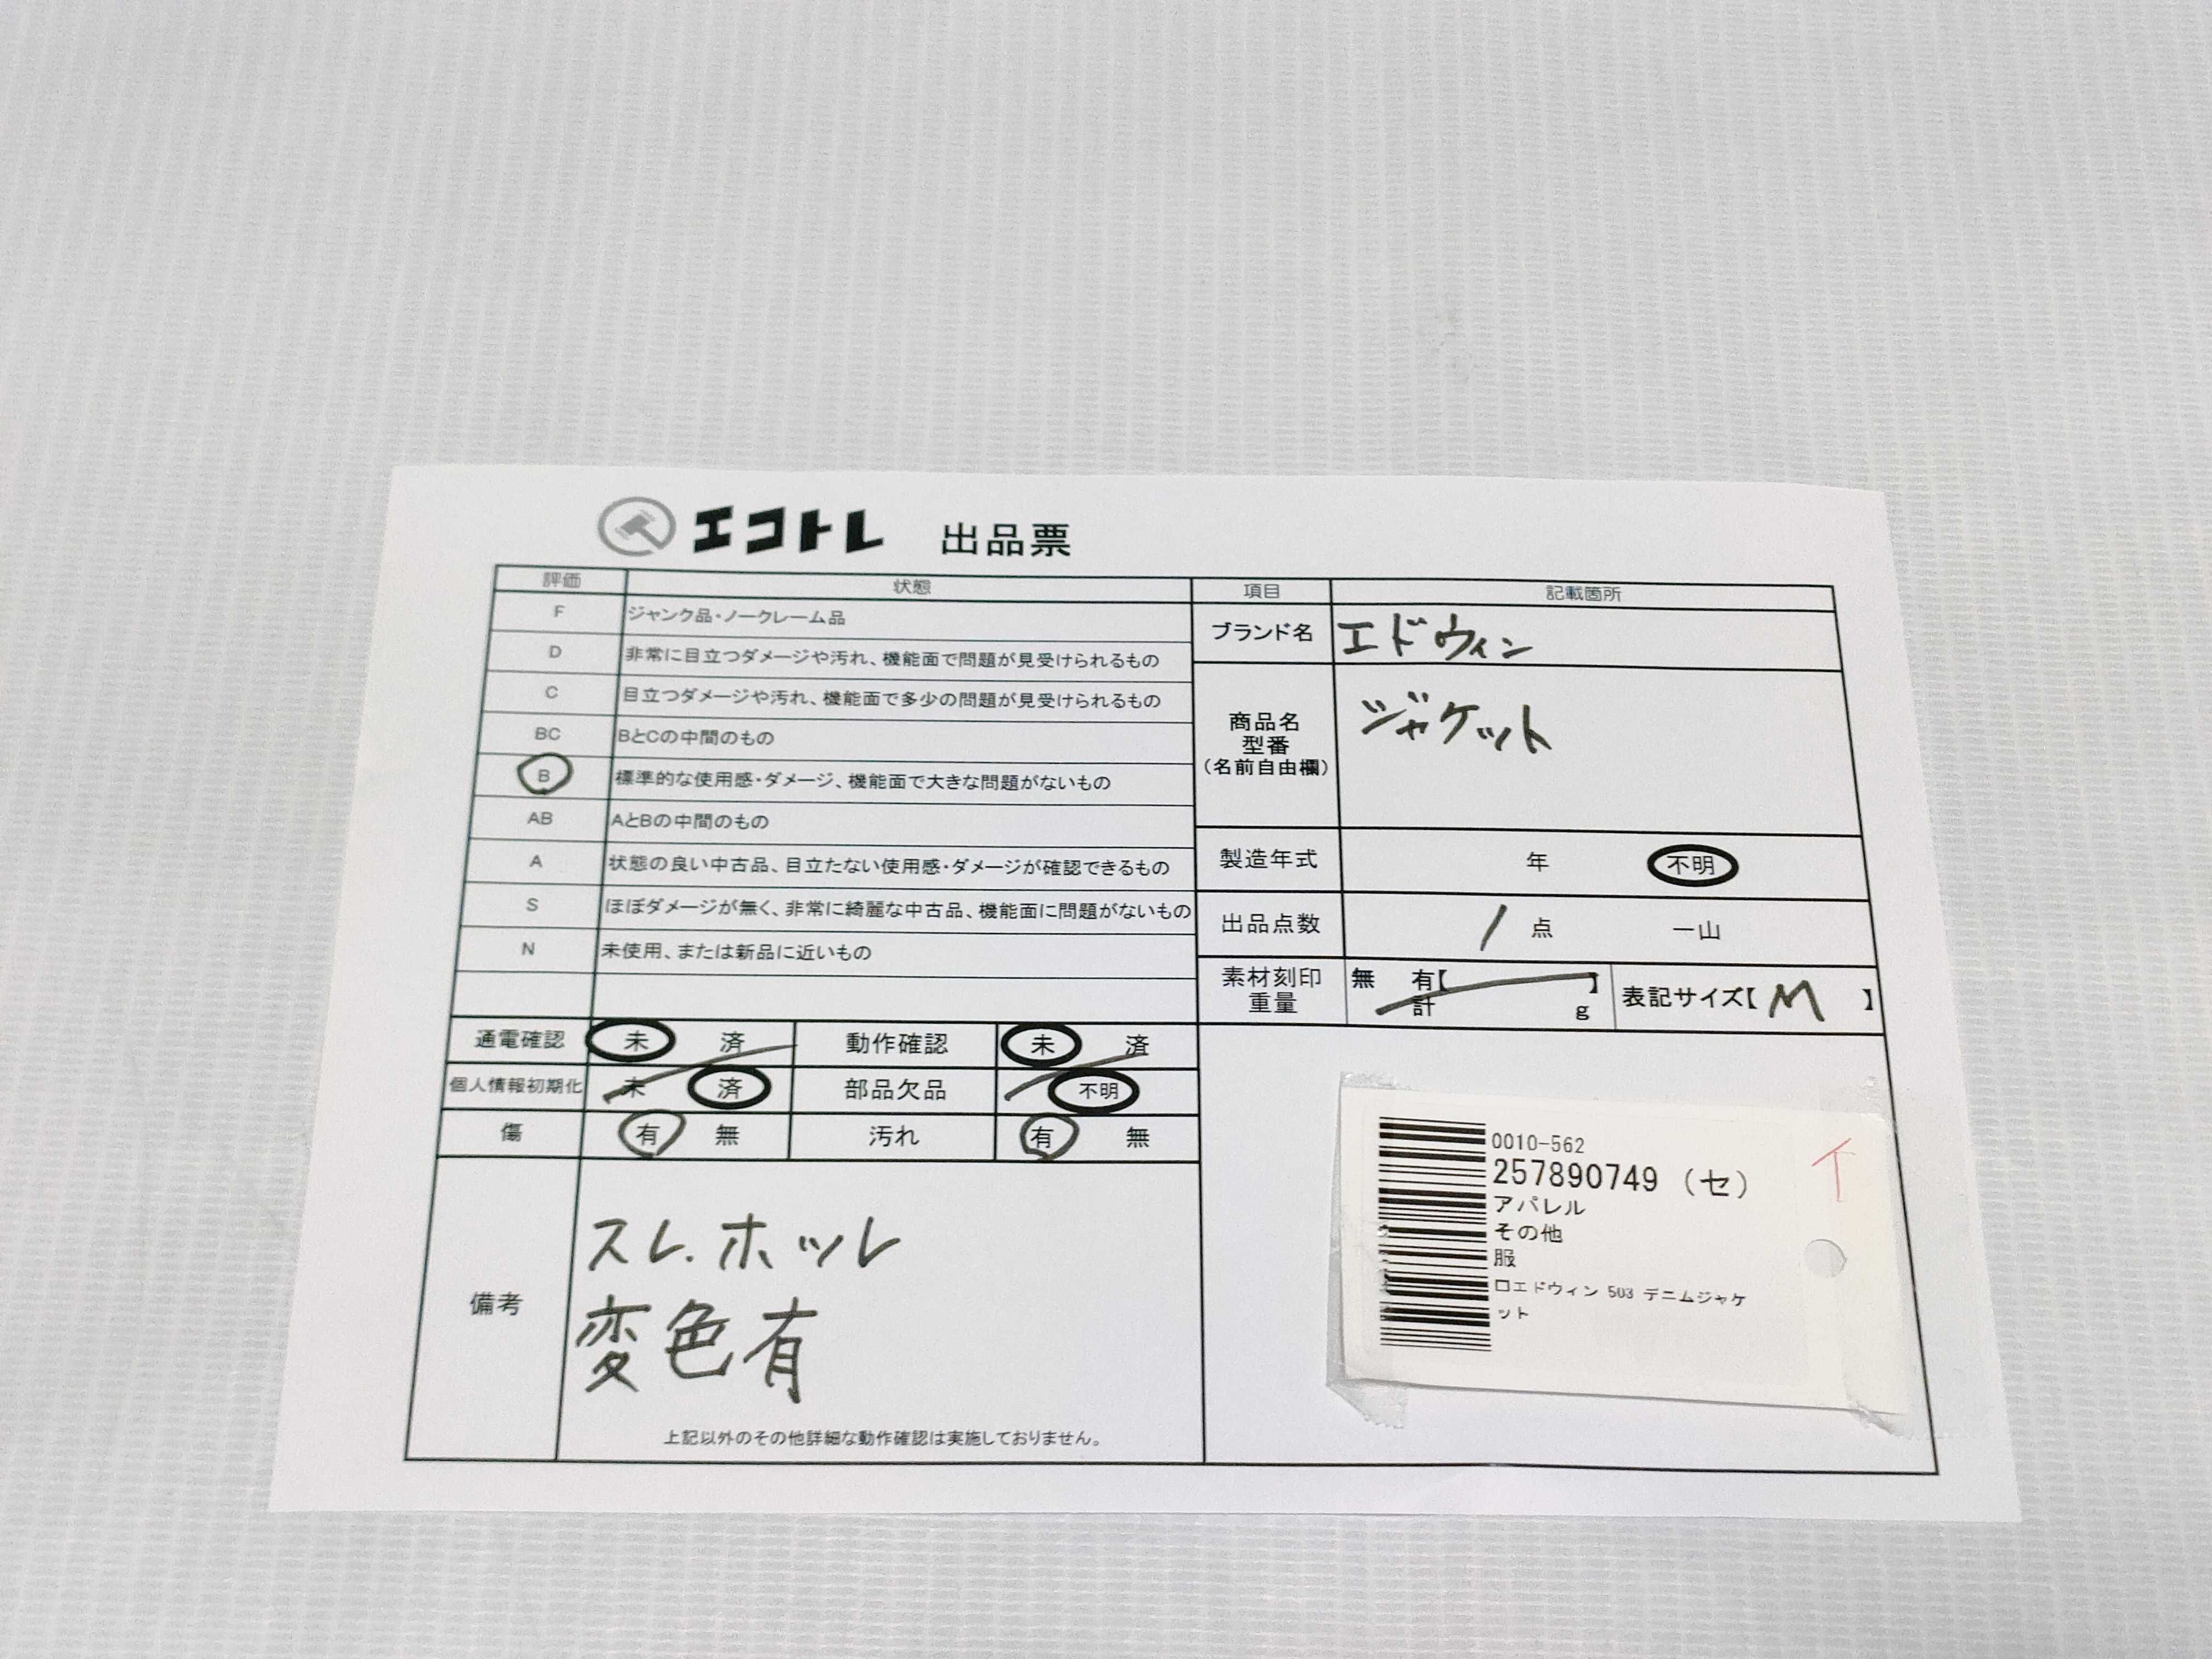 エコトレ 出品票
評価 状態
F ジャンク品・ノークレーム品
D 非常に目立つダメージや汚れ、機能面で問題が見受けられるもの
C 目立つダメージや汚れ、機能面で多少の問題が見受けられるもの
BC BとCの中間のもの
B 標準的な使用感・ダメージ、機能面で大きな問題がないもの
AB AとBの中間のもの
A 状態の良い中古品、目立たない使用感・ダメージが確認できるもの
S ほぼダメージが無く、非常に綺麗な中古品、機能面に問題がないもの
N 未使用、または新品に近いもの
通電確認 未 済 動作確認 未 済
個人情報初期化 未 済 部品欠品 不明
傷 有 無 汚れ 有 無
備考
スレ.ホツレ
変色有
上記以外のその他詳細な動作確認は実施しておりません。
項目 記載箇所
ブランド名 エドウィン
商品名
型番
（名前自由欄）
ジャケット
製造年式 年 不明
出品点数 1 点 一山
素材刻印 無 有【 】
重量 計 g
表記サイズ【 M 】
0010-562
257890749 (セ)
アパレル
その他
服
ロエドウィン 503 デニムジャケ
ット
イ